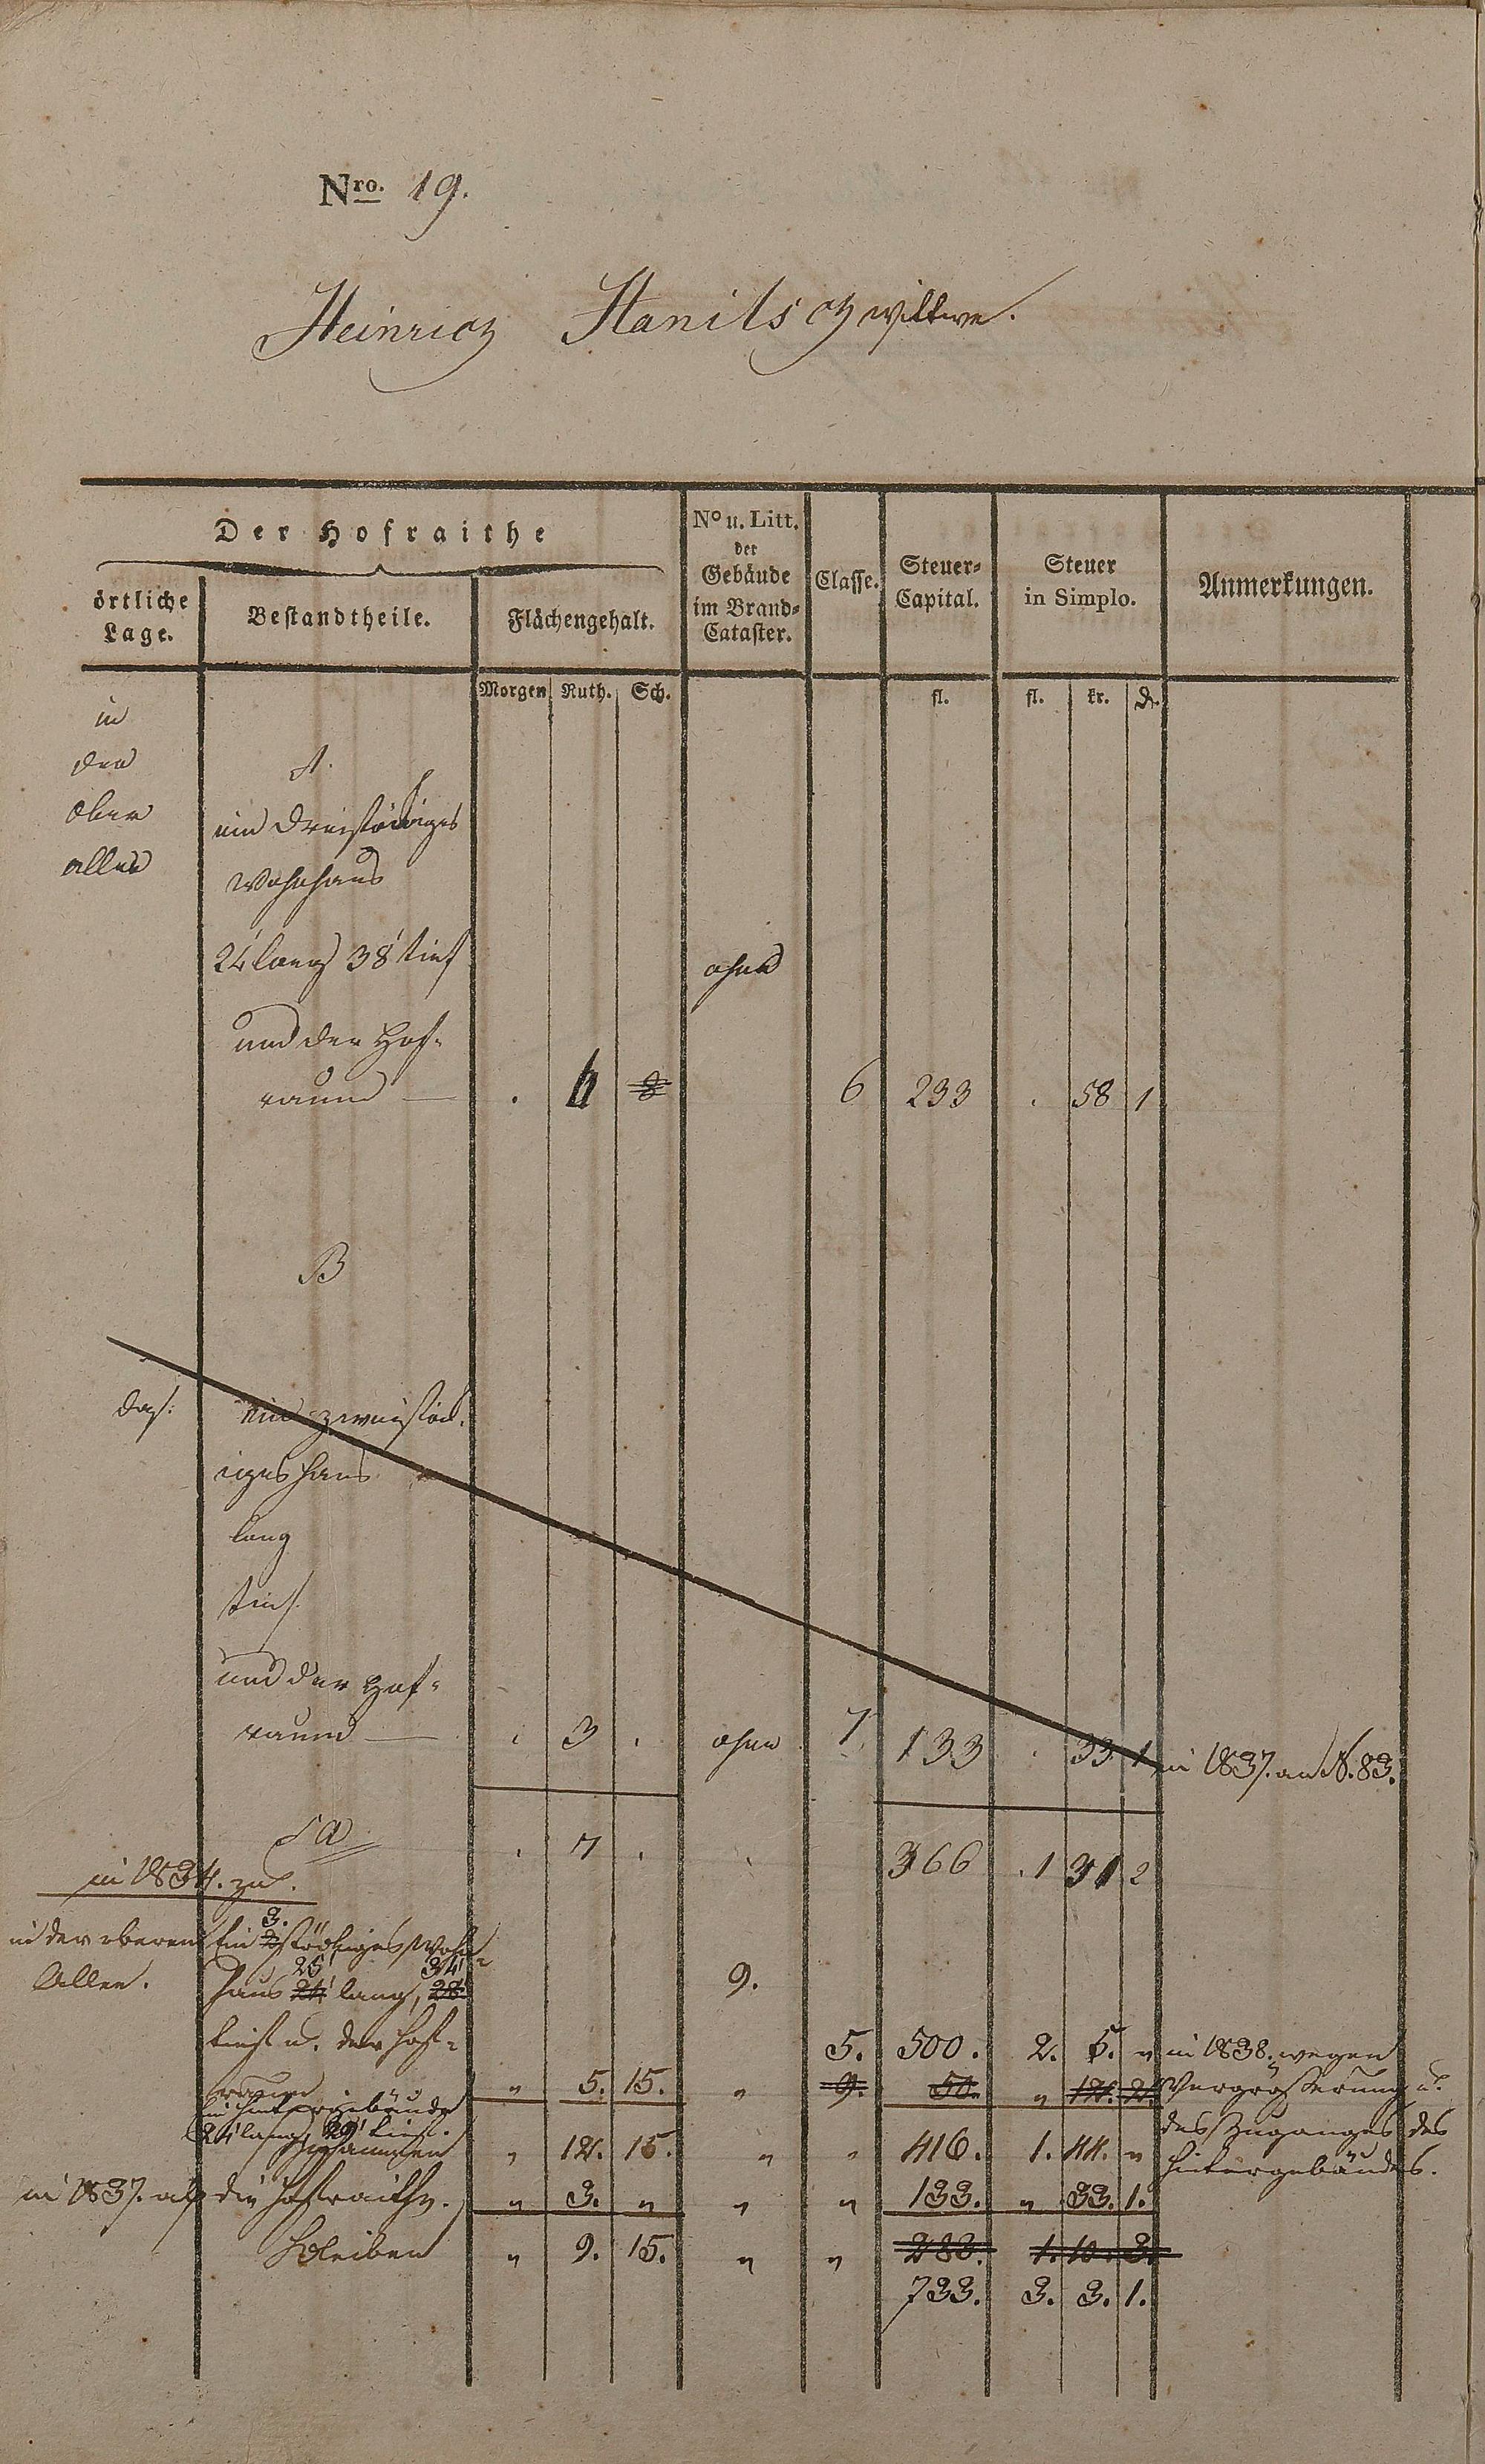 Nro. 19.
Heinrich Hanitsch wittwe.
Der Hofraithe
örtliche Lage.
Bestandtheile.
Flächengehalt.
No u. Litt. der Gebäude im Brand-Cataster.
Classe.
Steuer-Capital.
Steuer in Simplo.
Anmerkungen.
Morgen Ruth. Sch. fl. fl. kr. d.
in
der
ober
allee
A.
ein dreistöckiges
Wohnhaus
24' lang 38' tief ohne
und der Hof-
raum — . 4 8 6 233 . 58 1
B
das: ein zweistöck-
iges Haus
lang
tief
und der Hof-
raum — . 3 . ohne 7 133 . 33 1 in 1837. an N. 83.
Sa . 7 . 366 . 1 31 2
in 1834. zu.
in der oberen Ein 2 3. stöckiges Wohn-
Allee. haus 24' 25' lang, 28' 34' 9.
tief u. der Hof- 5. 500. 2. 5. „ in 1838. wegen
raum „ 5. 15. „ 9. 50. „ 12. 2. Vergrößerung u.
ein Hintergebäude
24' lang, 29' tief. des Zuganges des
Zusammen „ 12. 15. „ „ 416. 1. 44. „ Hintergebäudes.
in 1837. ab die Hofraithe. „ 3. „ „ „ 133. „ 33. 1.
Bleiben „ 9. 15. „ „ 283. 1. 10. 3.
733. 3. 3. 1.